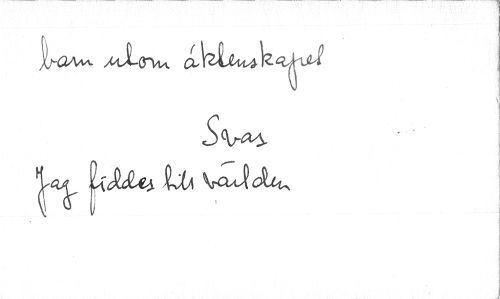 barn utom áktenskapet
Svar
Jag fíddes till världen